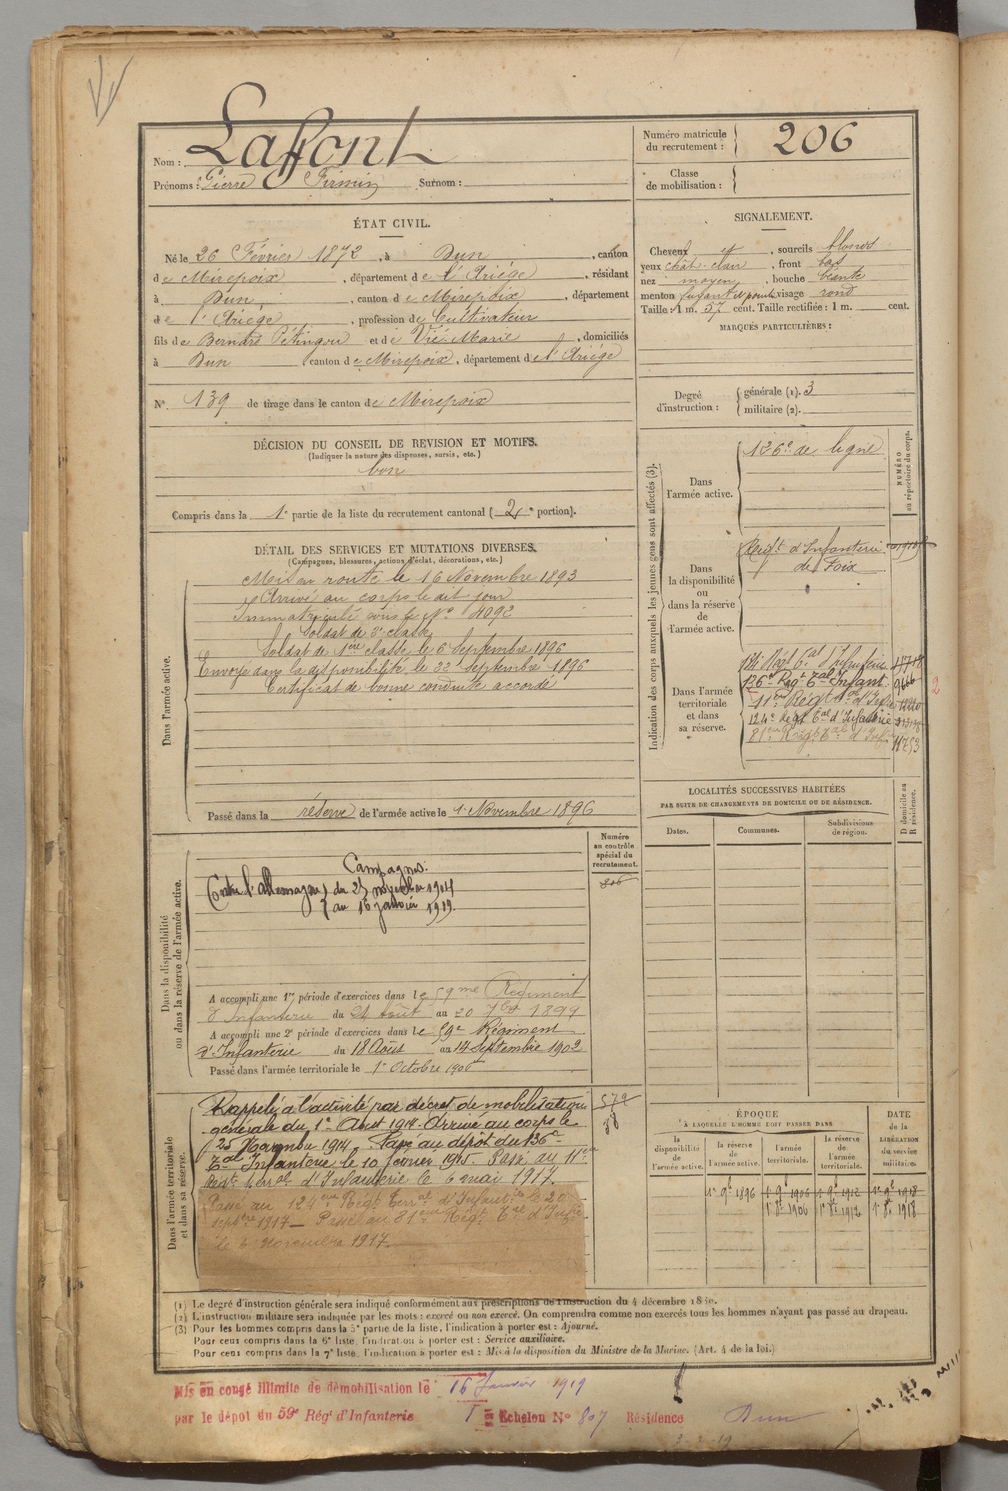 Nom : Laffont
Prénoms : Pierre Firmin Surnom :
Numéro matricule du recrutement : 206
Classe de mobilisation :
ÉTAT CIVIL.
Né le 26 Février 1872, à Dun, canton
de Mirepoix, département de l'Ariège, résidant
à Dun, canton de Mirepoix, département
de l'Ariège, profession de Cultivateur
fils de Bernard et de Marie, domiciliés
à Dun canton de Mirepoix, département de l'Ariège
N° 139 de tirage dans le canton de Mirepoix
SIGNALEMENT.
Cheveux et, sourcils blonds
yeux chât. clair, front bas
nez moyen, bouche
menton visage rond
Taille : 1 m. 57 cent. Taille rectifiée : 1 m. cent.
MARQUES PARTICULIÈRES :
Degré d'instruction : générale (1). 3
militaire (2).
DÉCISION DU CONSEIL DE REVISION ET MOTIFS.
(Indiquer la nature des dispenses, sursis, etc.)
bon
Compris dans la 1e partie de la liste du recrutement cantonal (2e portion).
DÉTAIL DES SERVICES ET MUTATIONS DIVERSES.
(Campagnes, blessures, actions d'éclat, décorations, etc.)
Dans l'armée active.
Mis en route le 16 Novembre 1893
Arrivé au corps le dit jour
Immatriculé sous le N° 4092
Soldat de 2e classe
Soldat de 1ère classe le 6 Septembre 1896
Envoyé dans la disponibilité le 22 Septembre 1896
Certificat de bonne conduite accordé
Passé dans la réserve de l'armée active le 1 Novembre 1896
Indication des corps auxquels les jeunes gens sont affectés (3).
NUMÉRO au répertoire du corps.
Dans l'armée active.
126e de ligne
Dans la disponibilité ou dans la réserve de l'armée active.
Regt d'Infanterie
de Foix
Dans l'armée territoriale et dans sa réserve.
136e Regt Tal Infant.
11me Régt Tal d'Infie
124e regt Tal d'Infanterie
81ème Regt Tal d'Infie 11753
LOCALITÉS SUCCESSIVES HABITÉES
PAR SUITE DE CHANGEMENTS DE DOMICILE OU DE RÉSIDENCE.
D domicile ou R résidence.
Dates. Communes. Subdivisions de région.
Dans la disponibilité ou dans la réserve de l'armée active.
Numéro au contrôle spécial du recrutement.
Campagnes:
Contre l'Allemagne, du 25 novembre 1914
au 16 janvier 1919.
A accompli une 1re période d'exercices dans le 59me Régiment
d'Infanterie du 24 Août au 20 7bre 1899
A accompli une 2e période d'exercices dans le 59e Régiment
d'Infanterie du 18 Août au 14 Septembre 1902
Passé dans l'armée territoriale le 1er Octobre 1906
Dans l'armée territoriale et dans sa réserve.
579
Rappelé à l'activité par décret de mobilisation
générale du 1er Août 1914. Arrivé au corps le
25 Novembre 1914. Passé au dépôt du 136e
Tal Infanterie le 10 février 1915. Passé au 11e
Regt. Terral d'Infanterie le 6 mai 1917.
Passé au 124ème Régt Terral d'Infanterie le 20
septbre 1917 — Passé au 81ème Régt. Tal d'Infie
le 6 Novembre 1917.
ÉPOQUE
À LAQUELLE L'HOMME DOIT PASSER DANS
la disponibilité de l'armée active. la réserve de l'armée active. l'armée territoriale. la réserve de l'armée territoriale.
DATE de la LIBÉRATION du service militaire.
1er 9bre 1896 1er 9bre 1906 1er 9bre 1912 1er 9bre 1918
1er 8bre 1906 1er 8bre 1912 1er 8bre 1918
(1) Le degré d'instruction générale sera indiqué conformément aux prescriptions de l'instruction du 4 décembre
(2) L'instruction militaire sera indiquée par les mots : exercé ou non exercé. On comprendra comme non exercés tous les hommes n'ayant pas passé au drapeau.
(3) Pour les hommes compris dans la 5e partie de la liste, l'indication à porter est : Ajourné.
Pour ceux compris dans la 6e liste, l'indication à porter est : Service auxiliaire.
Pour ceux compris dans la 7e liste, l'indication à porter est : Mis à la disposition du Ministre de la Marine. (Art. 4 de la loi.)
Mis en congé illimité de démobilisation le 16 Janvier 1919
par le dépôt du 59e Rég' d'Infanterie 1er Echelon N° 807 Résidence Dun